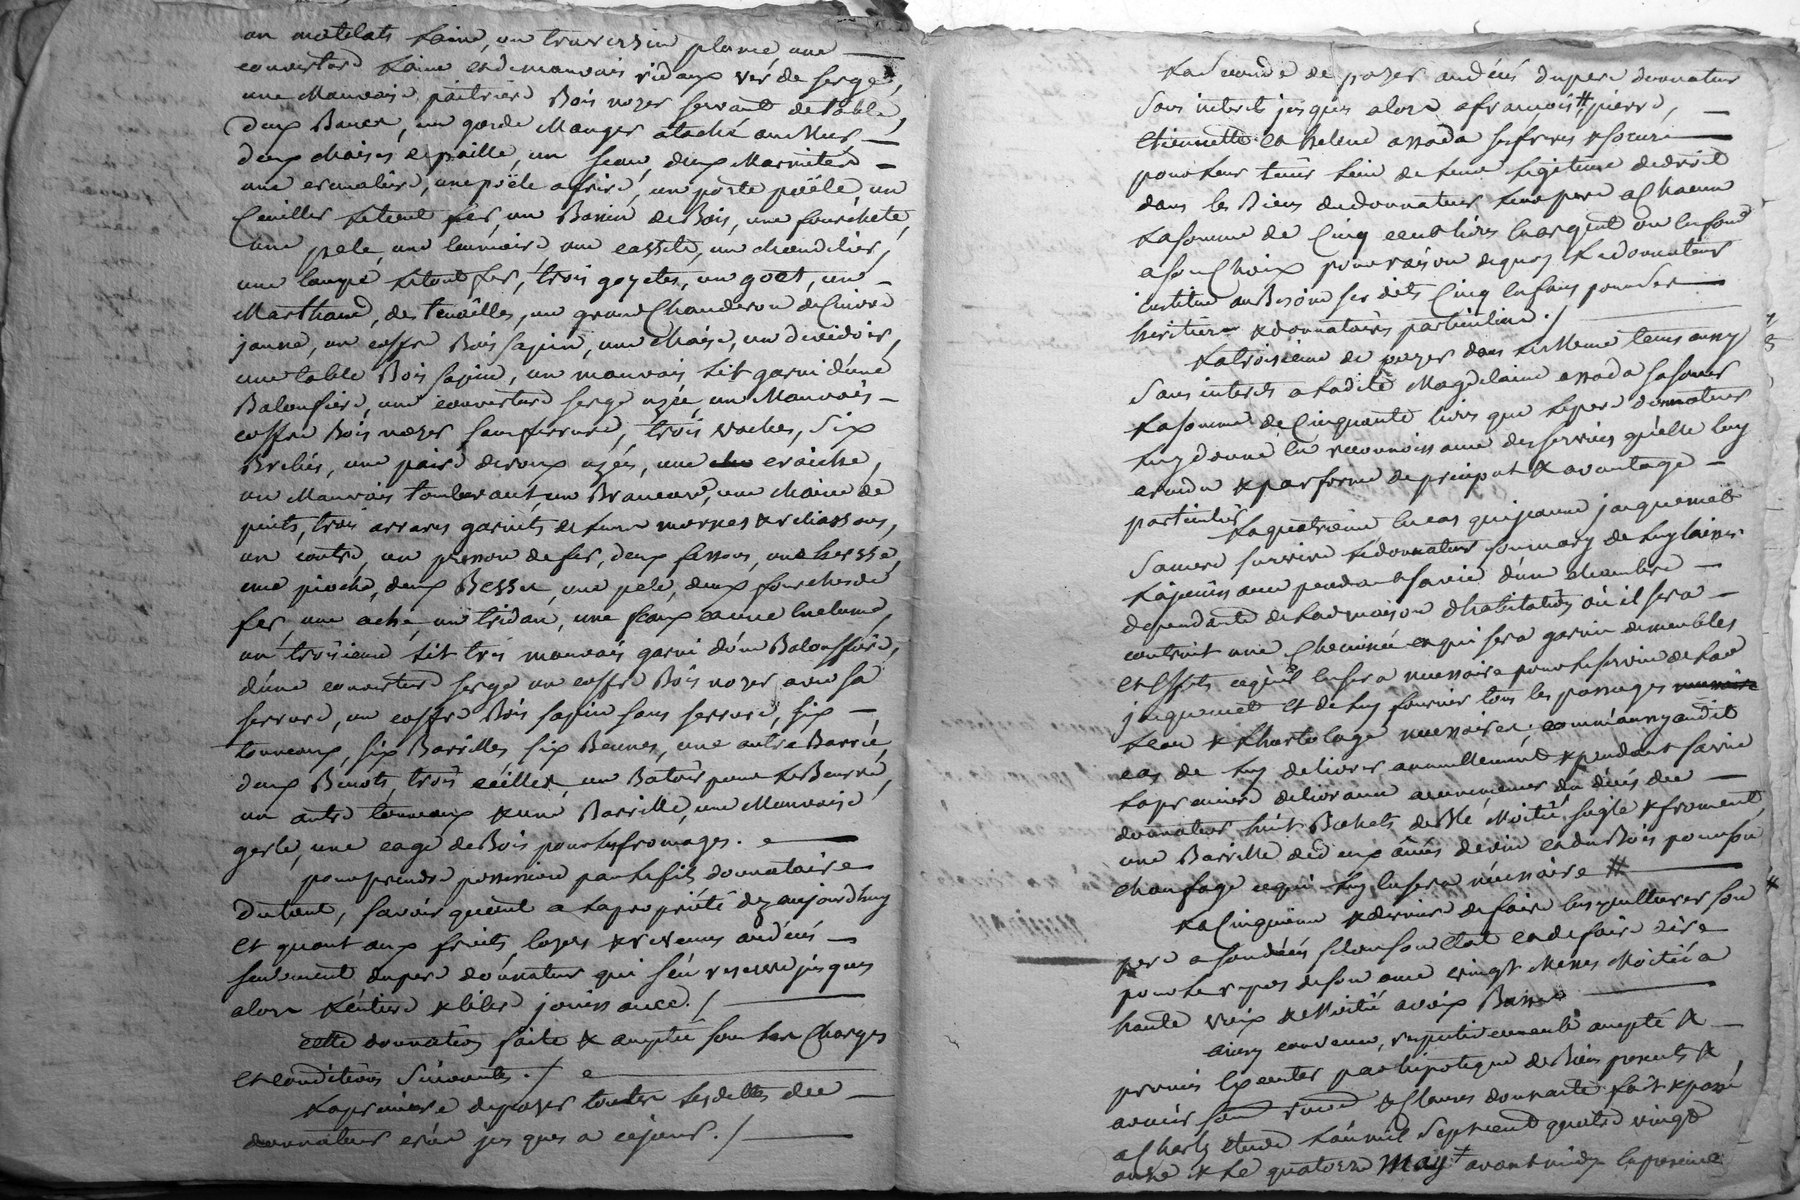 un matelats laine, un traversin plume, une
couverture laine et de mauvais ridaux ver de serge,
une mauvaise paitriere Bois noyer servant de table,
deux Bancs, un garde manger ataché au Mur
deux chaises epaille, un seau, deux Marmites
une cremaliere, une poële a frire, un porte poële un
Cueiller le tout fer, un Bassin de Bois, une fourchete,
une pele, une cassete, un chandelier,
une lampe le tout fer, trois goyetes, un goet, un
Marthaud, des tenailles, un grand Chauderon de Cuivre
jaune, un coffre Bois sapin, une chaise, un devidoir,
une table Bois sapin, un mauvais lit garni d'une
Baloufiere, une couverture serge uzée, un Mauvais
coffre Bois noyer sans ferrure, trois vaches, six
Brebis, une paire de roux uzées, une craiche,
un Mauvais tombereaut, une chaine de
puits, trois araires garnits de leurs
un coutre, un de fer, deux une hersse,
une pioche, deux Besses, une pele, deux fourches de
fer, une ache, un tridan, une faux
un troisieme lit très mauvais garni d'une Balouffiere,
d'une couverture serge un coffre Bois noyer avec sa
serrure, un coffre Bois sapin sans serrure, six
tonneaux, six Barrilles, six Bennes, une autre
deux Benots, trois un Batoir pour le Beurre,
un autre tonneaux & une Barrille, une Mauvaise
gerle, une cage de Bois pour les fromages.
pour prendre possession par le fils donnataire
du tout, savoir quant a la propriété dez aujourdhuy
et quant aux fruits loyers & revenus au décès
seulement du pere donnateur qui s'en reserve jusques
alors l'entiere & libre jouissance./
cette donnation faite & acceptée sous les Charges
et conditions suivantes./
La premiere de payer toutes les dettes du
donnateur créées jusques a ce jour./
La seconde de payer au décès du pere donnateur
sans interet jusques alors a françois # pierre,
etiennette et helene assada ses freres & sœurs
pour leur tenir lieu de leur legitime de droit
dans les Biens du donnateur leur pere a chacun
la somme de Cinq cent livres en argent ou en fond
a son Choix pour raison de quoy le donnateur
institue au Besoin ses dits Cinq enfans pour ses
heritiers & donnataires particuliers./
La troisieme de payer dans le meme tems aussy
sans interets a ladite Magdelaine assada sa sœur
la somme de Cinquante livres que le pere donnateur
luy donne en reconnoissance des services qu'elle luy
a rendu & par forme de preciput & avantage
particulier
La quatrieme en cas que jeanne jacquemet
sa mere survive le donnateur son mary de luy laisser
la jouissance pendant sa vie d'une chambre
dependante de la maison d'habitation où il sera
contruit une Cheminée et qui sera garnie de meubles
et effets ce qu'il en sera necessaire pour le service de la
jacquemet et de luy fournir tous les passages
l'eau & l'hortolage necessaires; comm'aussy audit
cas de luy delivrer annuellement & pendant sa vie
la premiere delivrance a commencer du décès du
donnateur huit Bichets de Blé Moitié segle & froment,
une Barrille de deux anées de vin et du Bois pour son
chaufage ce qui luy en sera necessaire #
La Cinquieme & derniere de faire ensepulturer son
pere a son décès selon son etat et de faire dire
pour le repos de son ame vingt Messes Moitié a
haute voix & Moitié a voix Basse
ainsy convenu, respectivement accepté &
promis executer par hipoteque de Biens presents &
avenir & Clauses dont acte fait & passé
a Charly etude l'an mil sept cent quatre vingt
onze & le quatorze May avant midy en presence